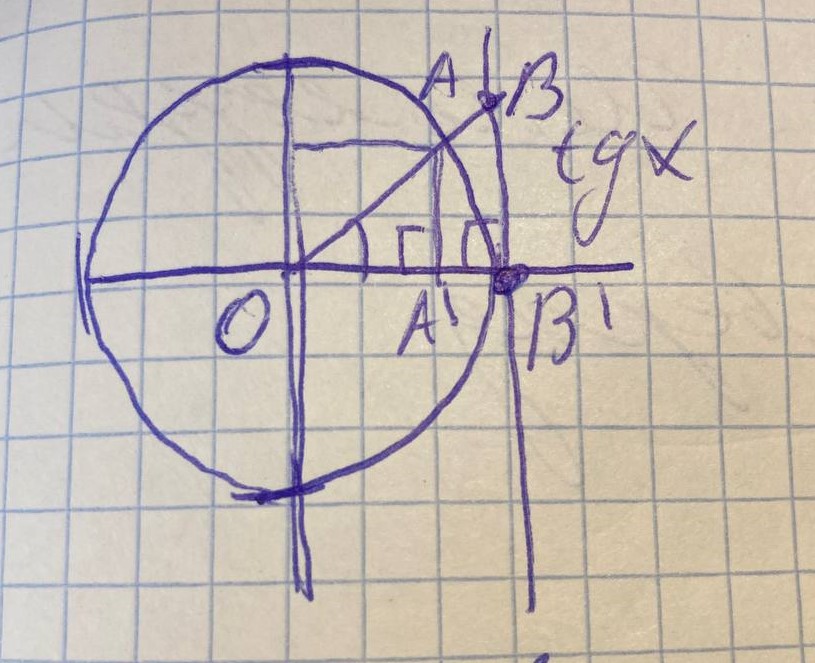 A B
tg x
O A' B'